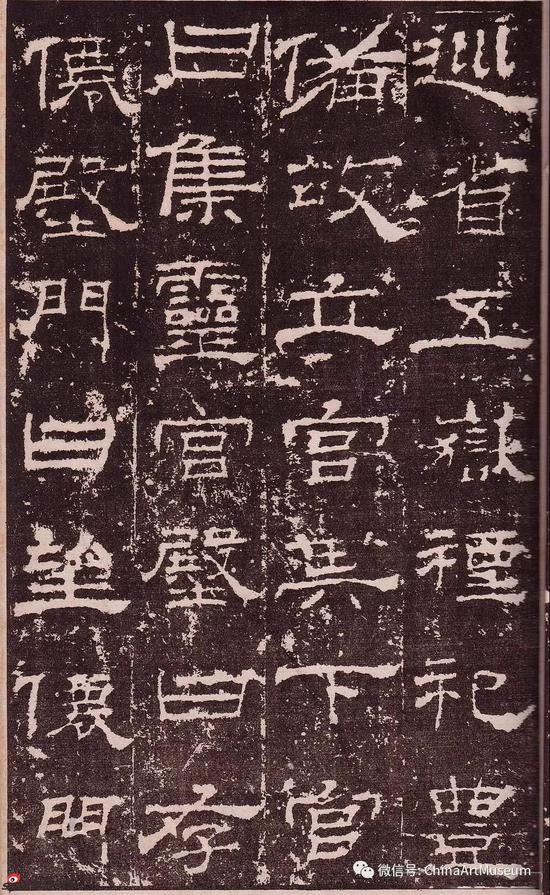 巡省五嶽禋祀豐
備故立宮其下宮
曰集靈宮壂曰存
僊壂門曰望僊門
微信号: ChinaArtMuseum